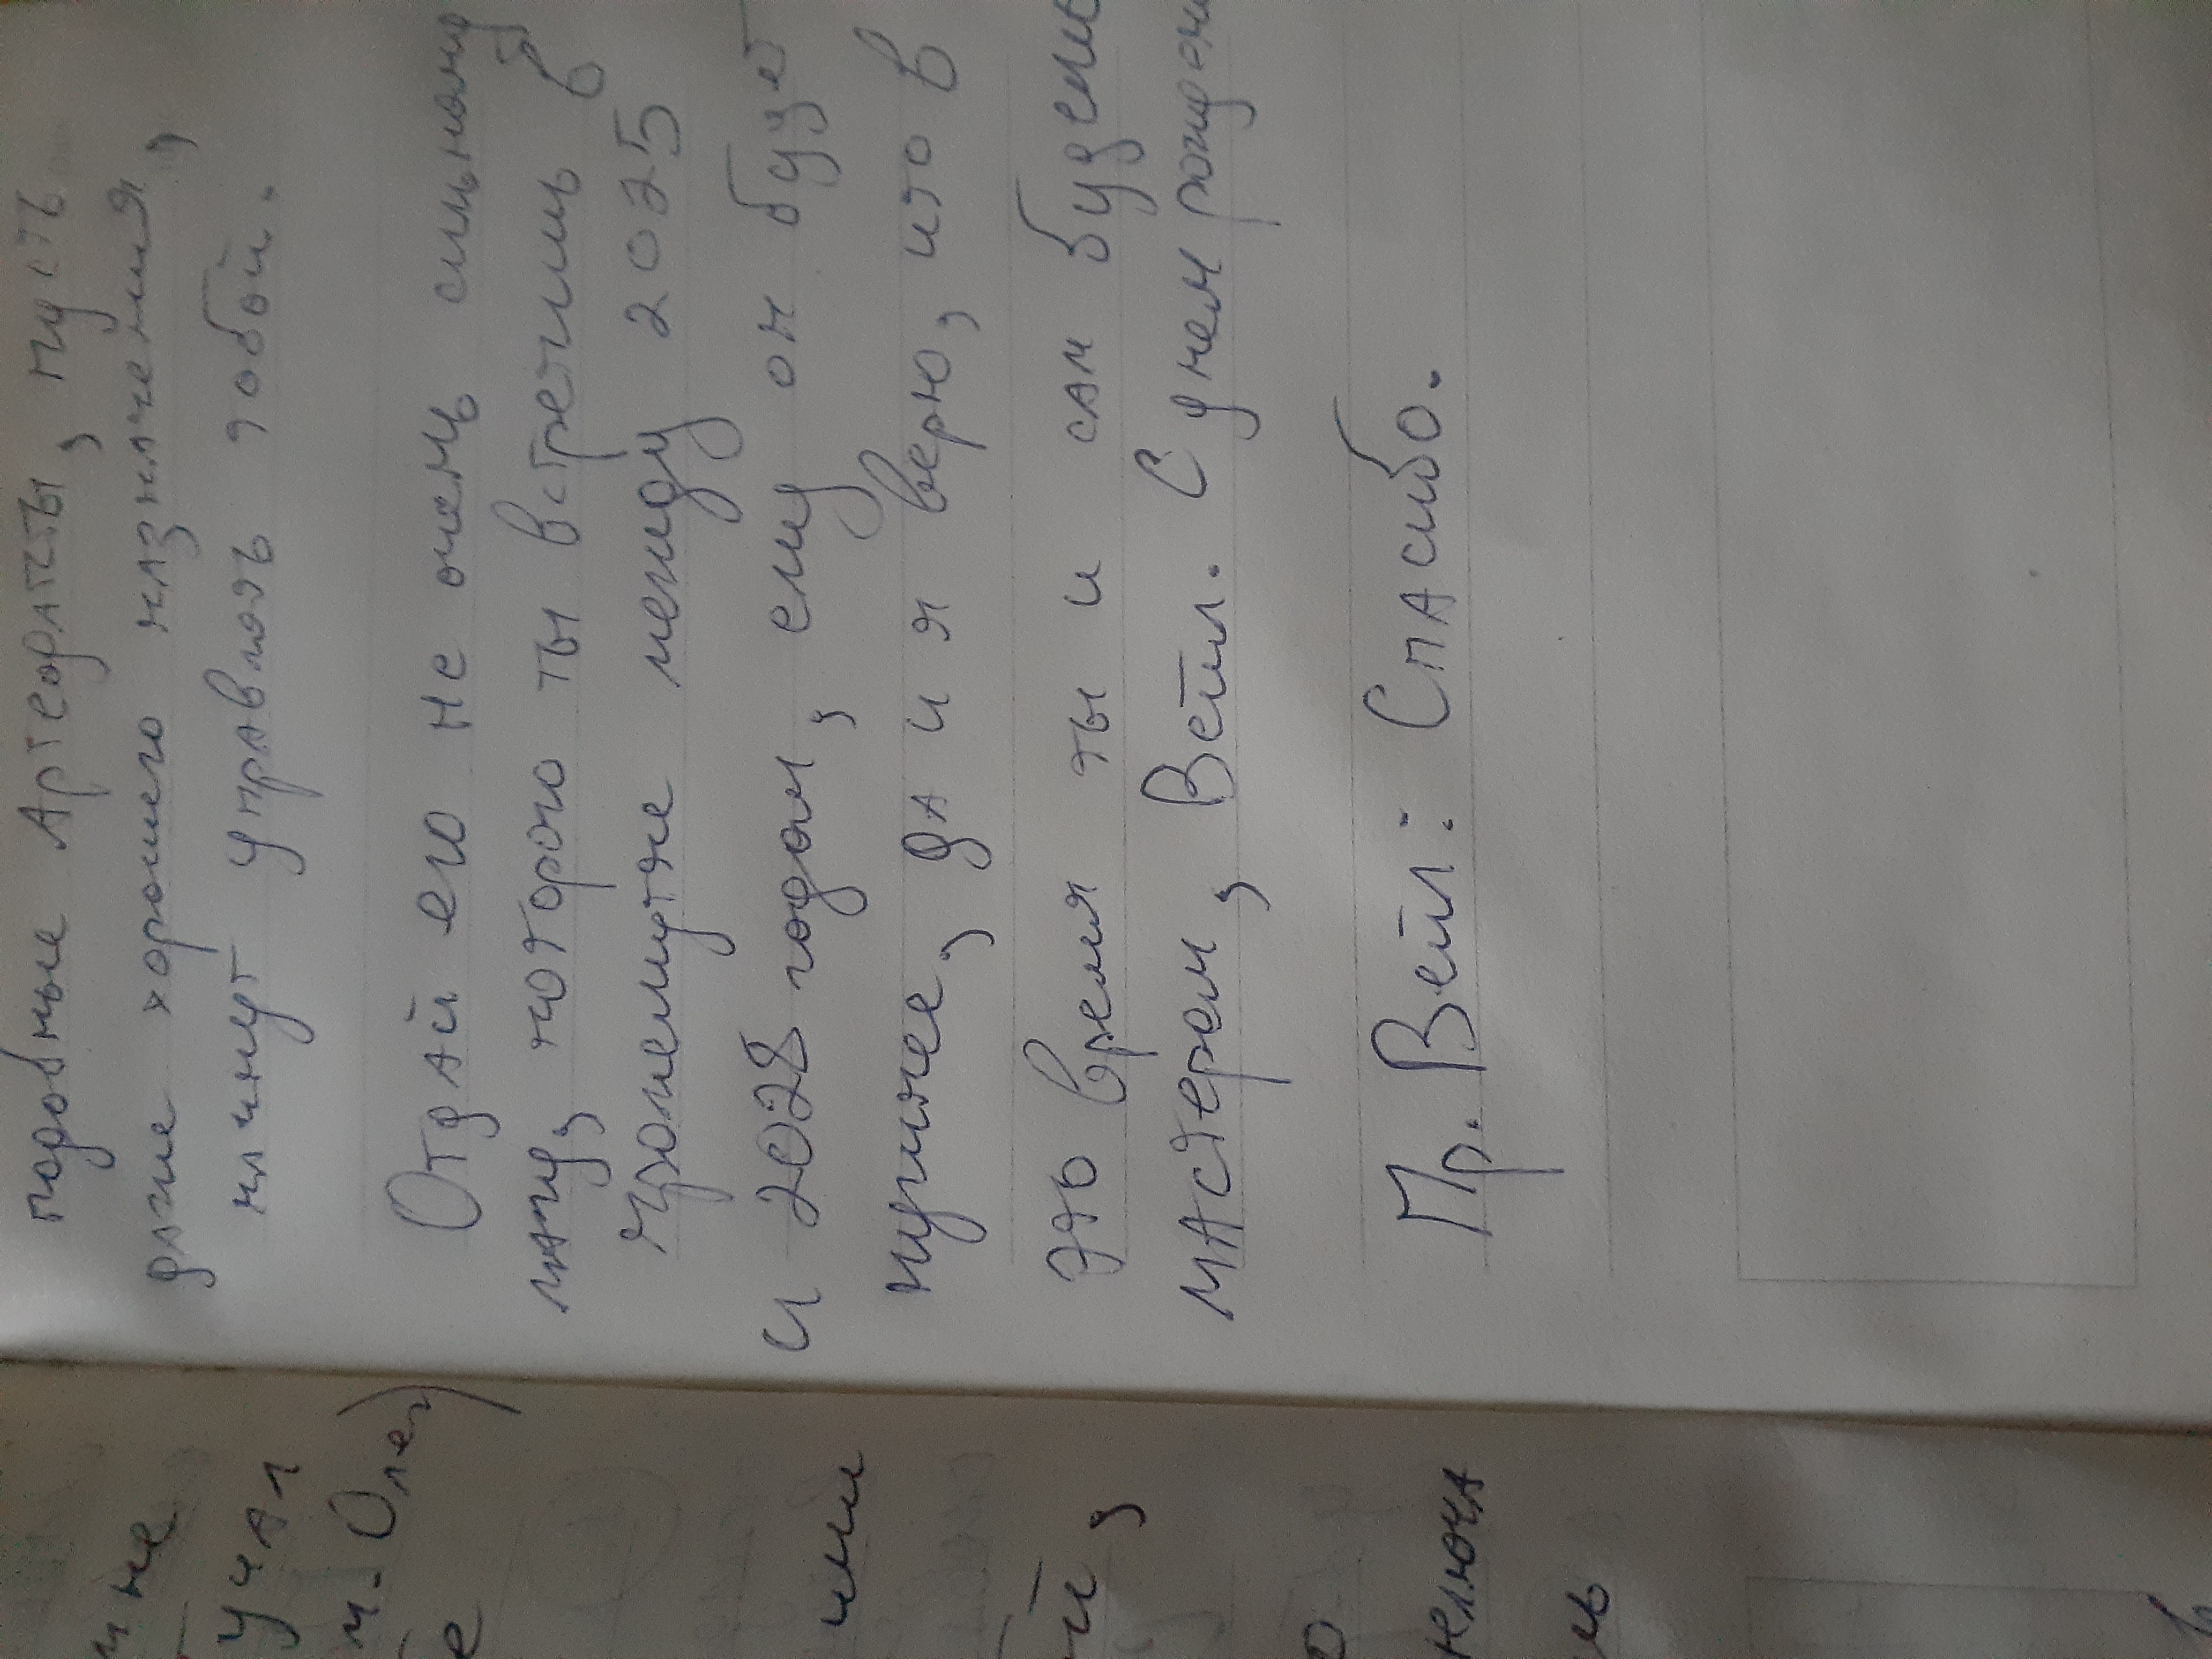 подобные Артефакты, пусть
даже хорошего назначения,
начнут управлять тобой.
Отдай его не очень сильному
магу, которого ты встретишь в
промежутке между 2025
и 2028 годом, ему он будет
нужнее, да и я верю, что в
это время ты и сам будешь
мастером, Вейл. С днем рожден
Пр. Вейл: Спасибо.
не
учил
м. Олег)
е
ими
й,
о
ключа
ь